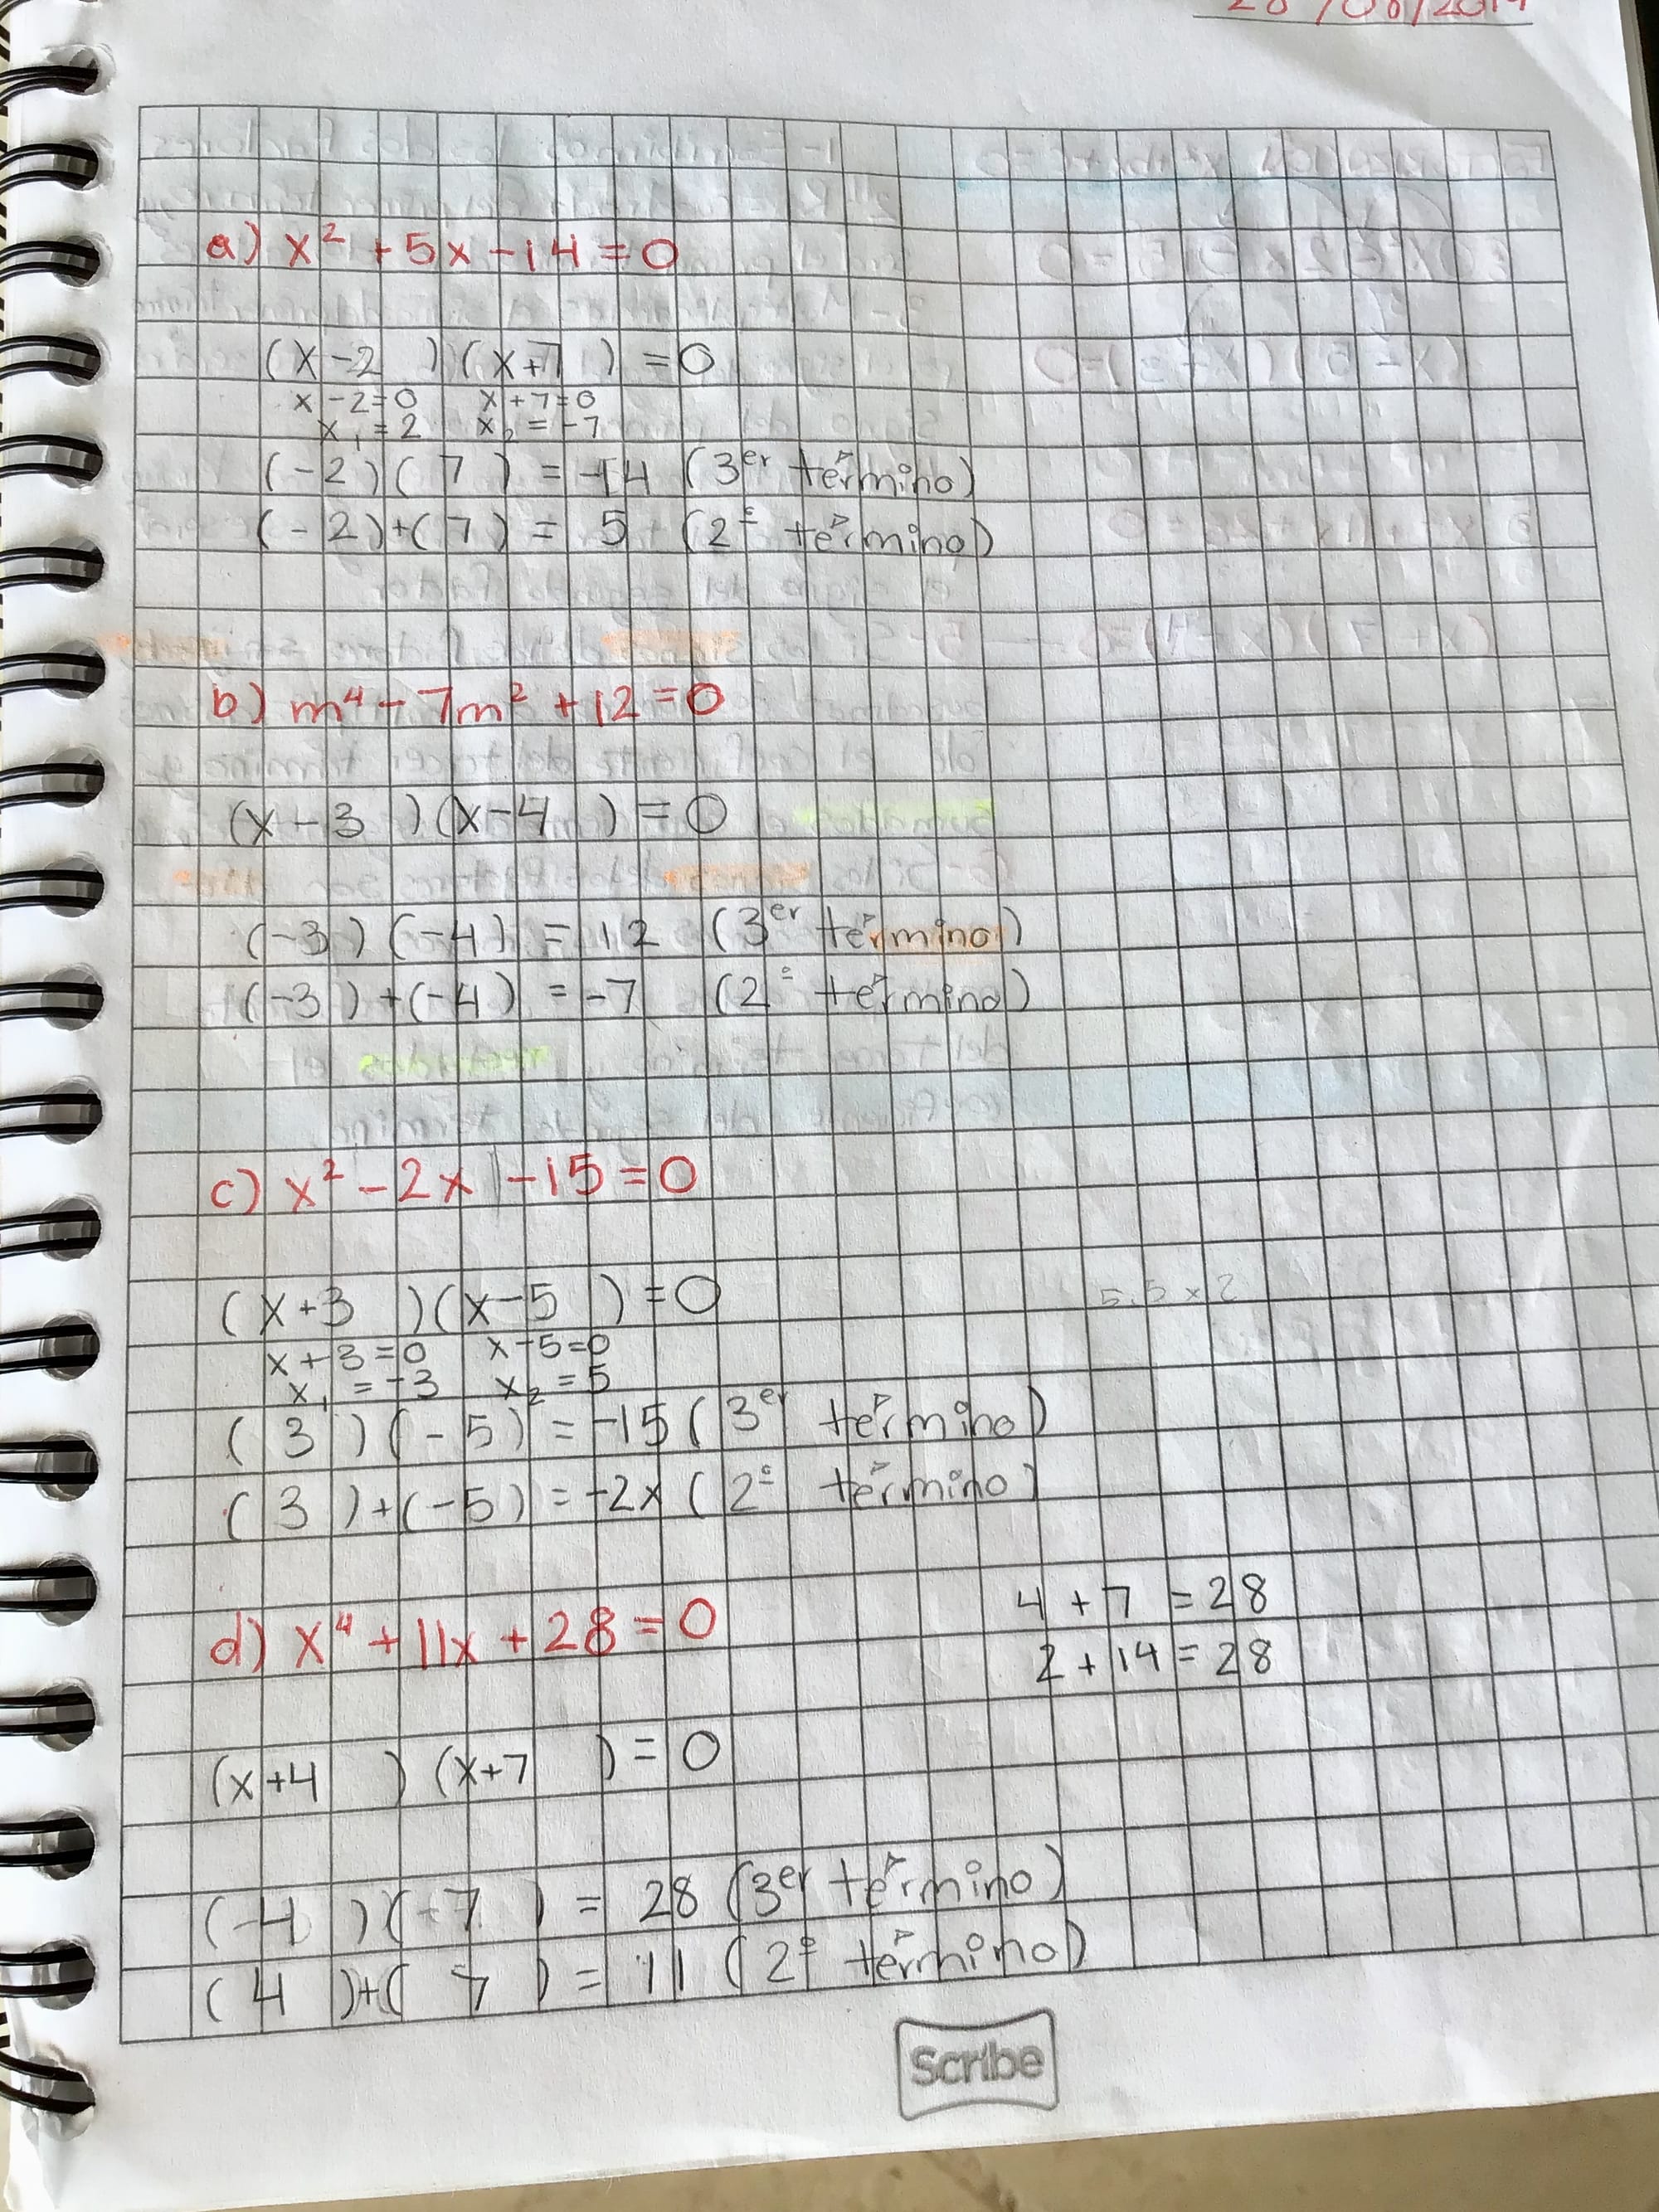 28/08/2019
a) x² + 5x - 14 = 0
(x - 2 ) (x + 7 ) = 0
x - 2 = 0 x + 7 = 0
x₁ = 2 x₂ = -7
(-2)( 7 ) = -14 (3er término)
(-2)+( 7 ) = 5 (2º término)
b) m⁴ - 7m² + 12 = 0
(x - 3 ) (x - 4 ) = 0
(-3) (-4) = 12 (3er término)
(-3) + (-4) = -7 (2º término)
c) x² - 2x - 15 = 0
(x + 3 ) (x - 5 ) = 0
5.5 x 2
x + 3 = 0 x - 5 = 0
x₁ = -3 x₂ = 5
( 3 ) (-5) = -15 (3er término)
( 3 ) + (-5) = -2x (2º término)
d) x⁴ + 11x + 28 = 0
4 + 7 = 28
2 + 14 = 28
(x + 4 ) (x + 7 ) = 0
( 4 ) ( 7 ) = 28 (3er término)
( 4 )+( 7 ) = 11 (2º término)
Scribe